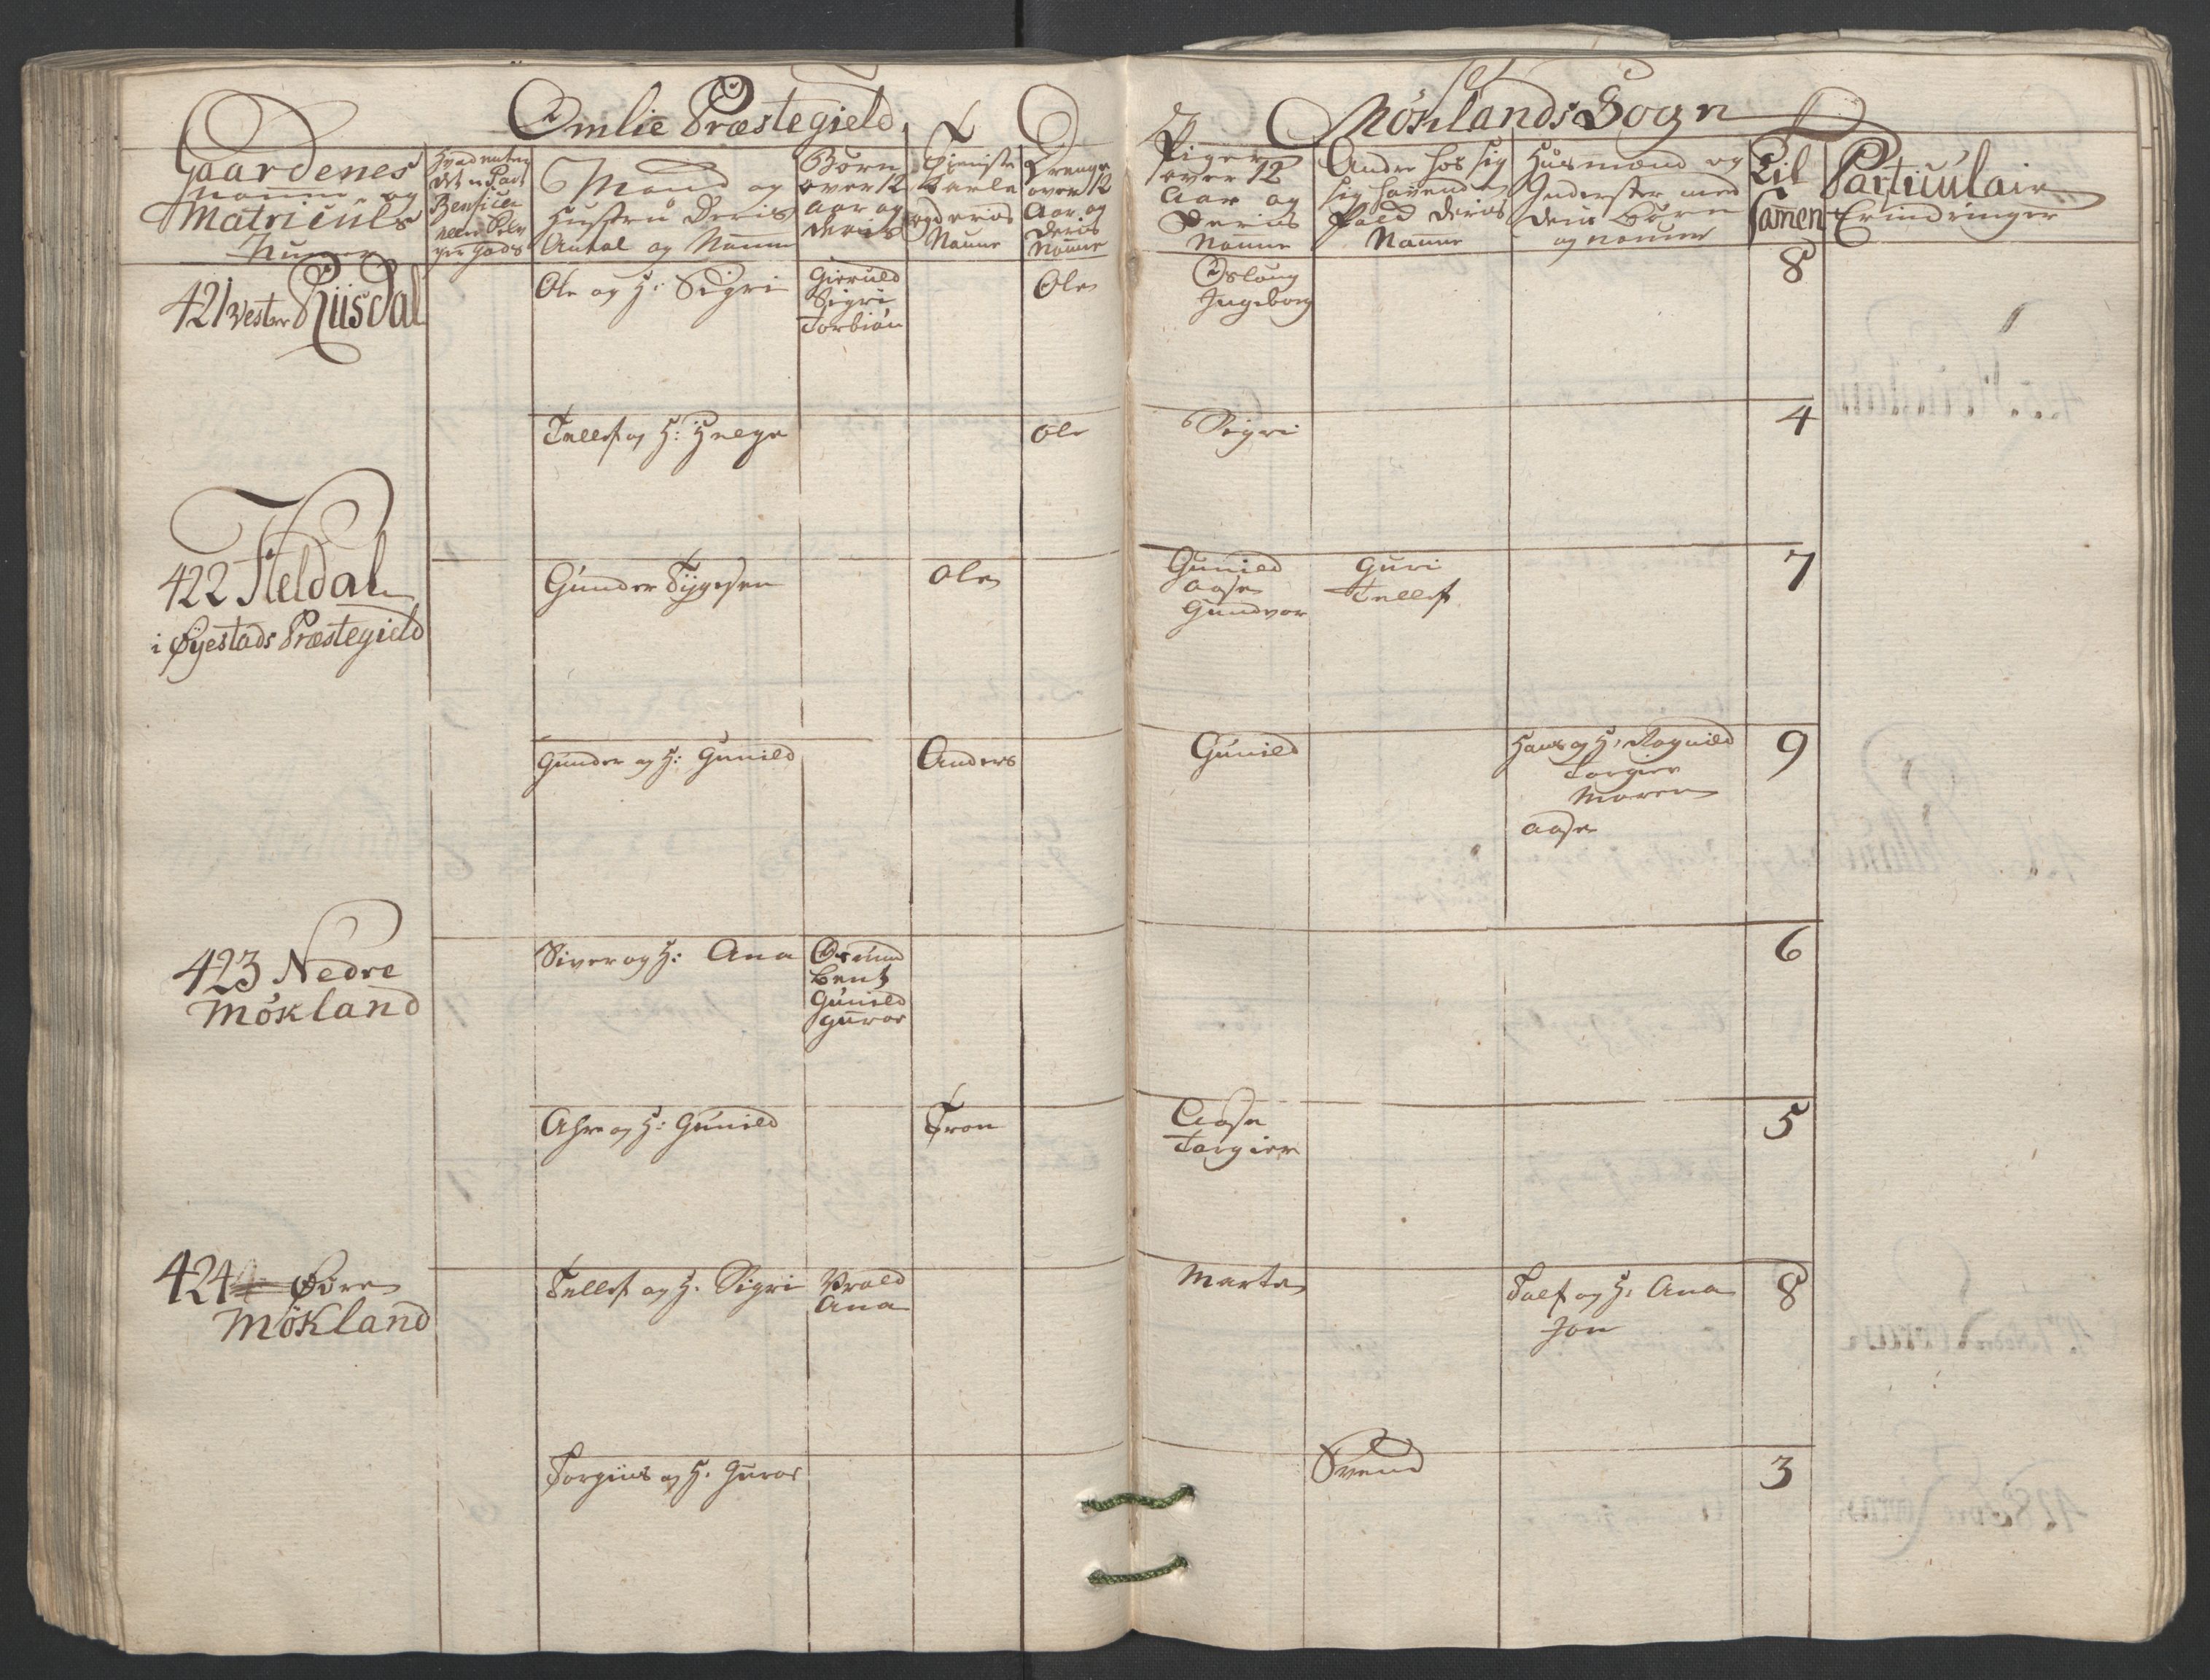 Omlie Præstegield
Möklands Sogn
Gaardenes
Nafne og
Matriculs
Numer
Mand og
Hustru Deris
Antal og Nafne
Børn
over 12
Aar og
deris
Tieniste
Karle
og deris
Nafne
Drenge
over 12
Aar og
deris
Nafne
Piger
over 12
Aar og
Deris
Nafne
Andre hos sig
Deris
Nafne
Huusmænd og
Inderster med
deris Børn
og nafner
Til
samen
Particulair
Erindringer
421 Vester Riisdal
Ole og H: Sigri
Gieruld
Sigri
Torbiön
Ole
Oslaug
Ingeborg
8
Tellef og H: Helge
Ole
Sigri
4
422 Heldal
i Øyestads Præstegield
Gunder Tygesen
Ole
Gunild
Aase
Gundvor
Guri
Tellef
7
Gunder og H: Gunild
Anders
Gunild
Hans og H: Ragnild
Torgier
Maren
Aase
9
423 Nedre
Mökland
Siver og H: Ana
Osmund
Bent
Gunild
Guroe
6
og H: Gunild
Tron
Aase
Torgier
5
424 Øvre
Mökland
Tellef og H: Sigri
Vrald
Ana
Marte
og H: Ana
Jon
8
Torgiius og H: Guroe
Svend
3